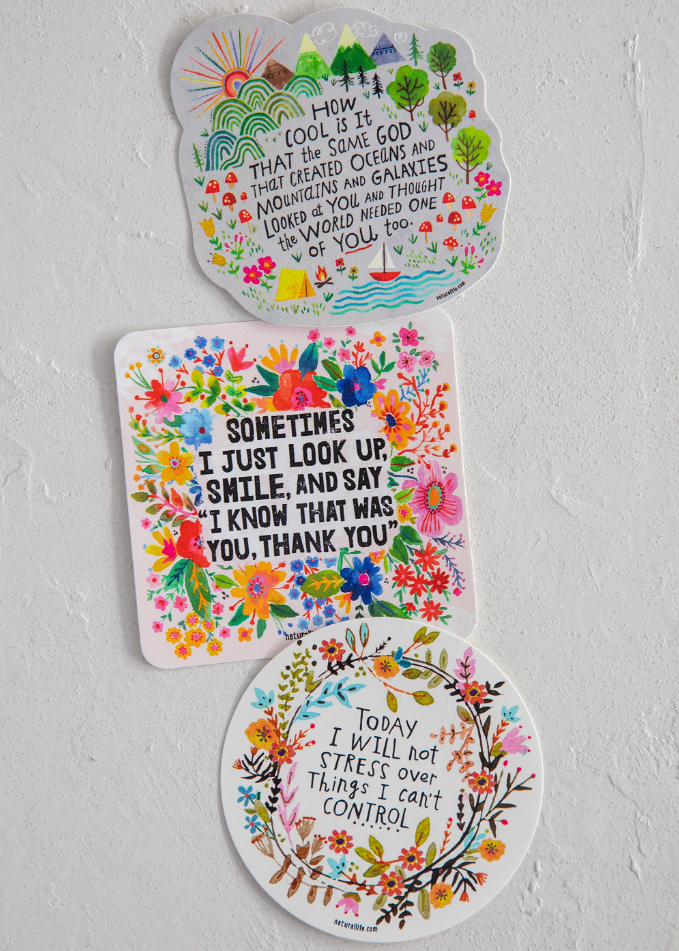 HOW
COOL is It
THAT the SAME GOD
THAT CREATED OCEANS AND
MOUNTAINS AND GALAXIES
LOOKED at YOU AND THOUGHT
the WORLD NEEDED ONE
OF YOU too.
naturallife.com
SOMETIMES
I JUST LOOK UP,
SMILE, AND SAY
“I KNOW THAT WAS
YOU, THANK YOU”
TODAY
I WILL not
STRESS over
Things I can't
CONTROL
naturallife.com